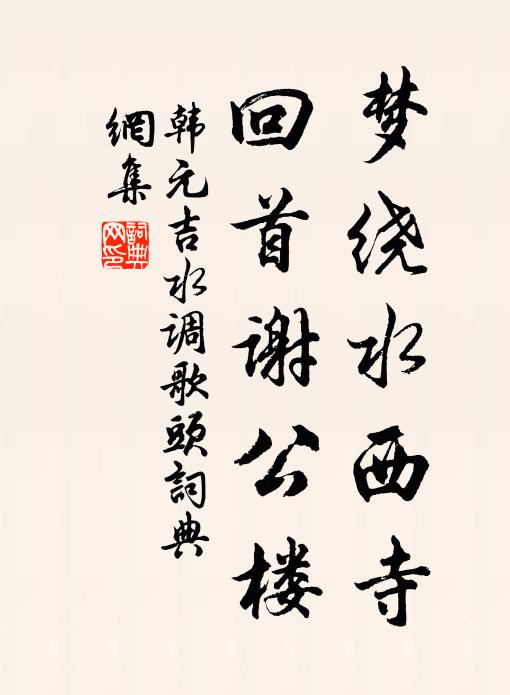 梦绕水西寺
回首谢公楼
韩元吉水调歌头詞典
網集
詞典
网印